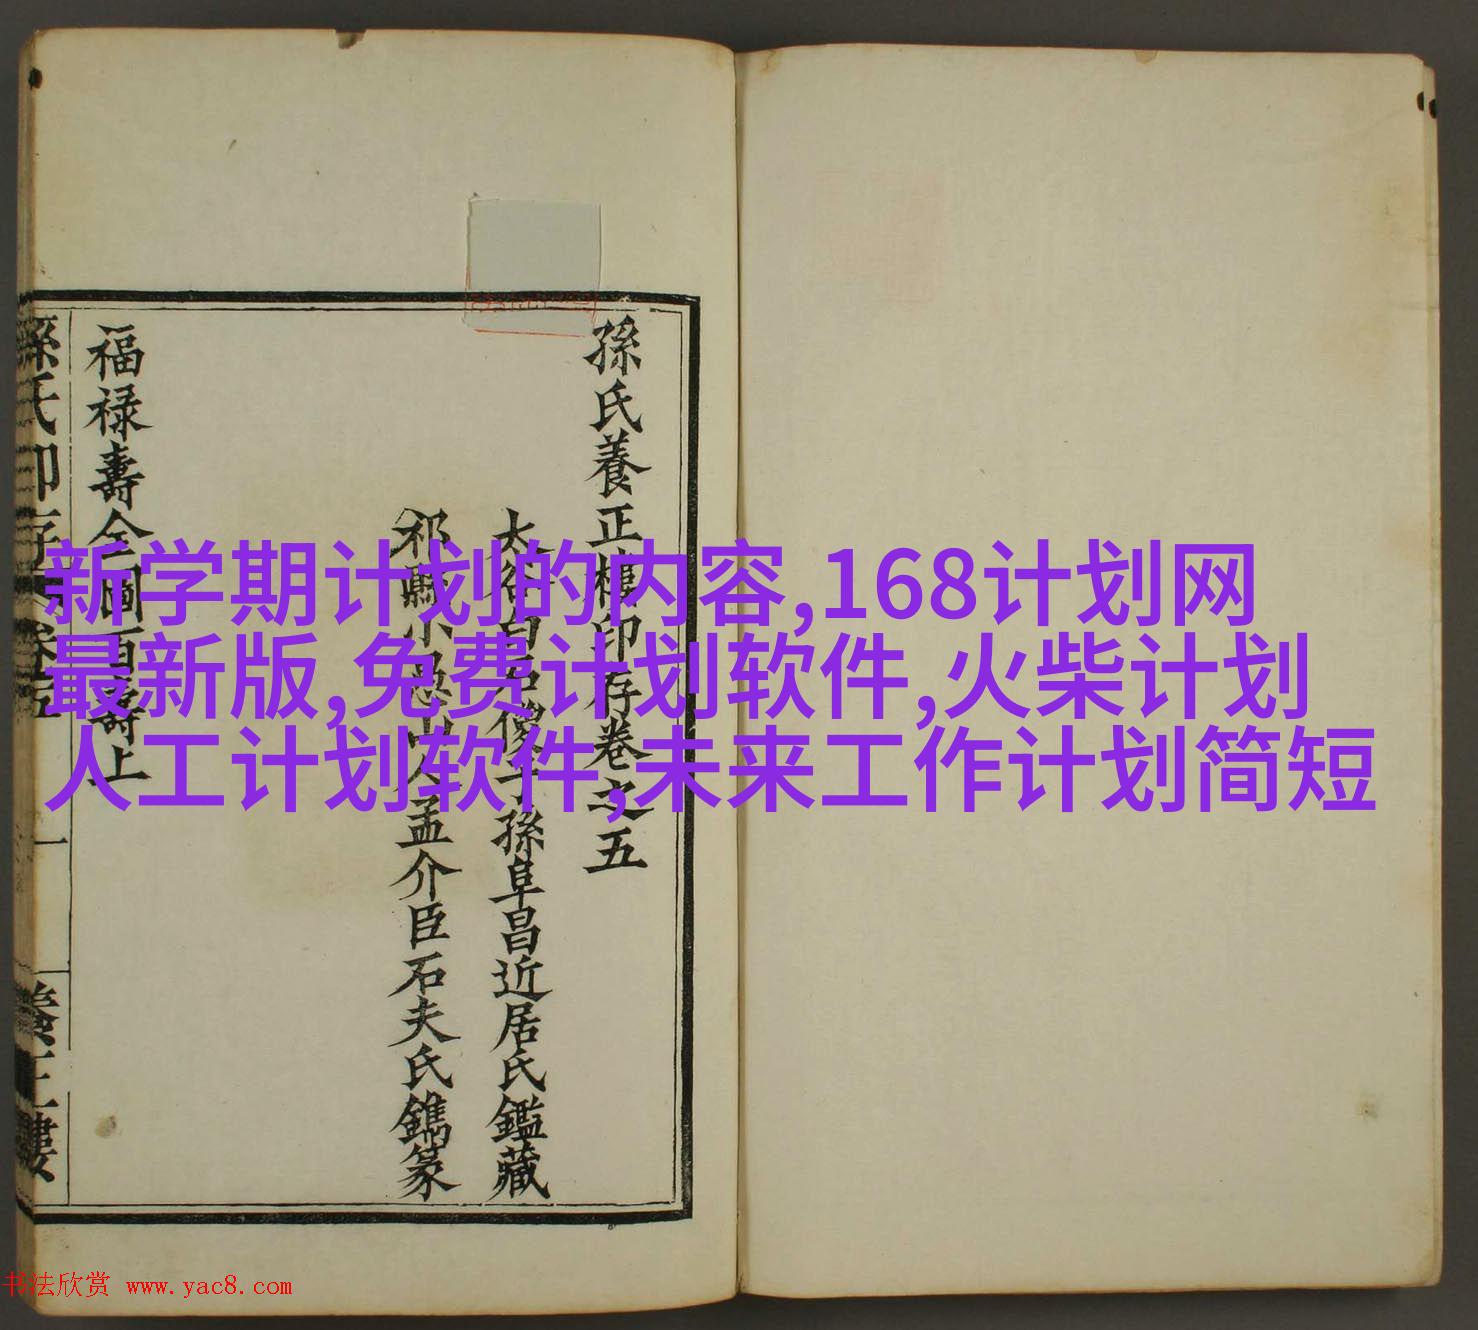 孫氏養正樓印存卷之五
太谷白孫阜昌近居氏鑑藏
祁縣小山人孟介臣石夫氏鐫篆
福禄壽全圖百壽上
孫氏印存 卷五 一 養正樓
新学期计划的内容,168计划网
最新版,免费计划软件,火柴计划
人工计划软件,未来工作计划简短
书法欣赏 www.yac8.com